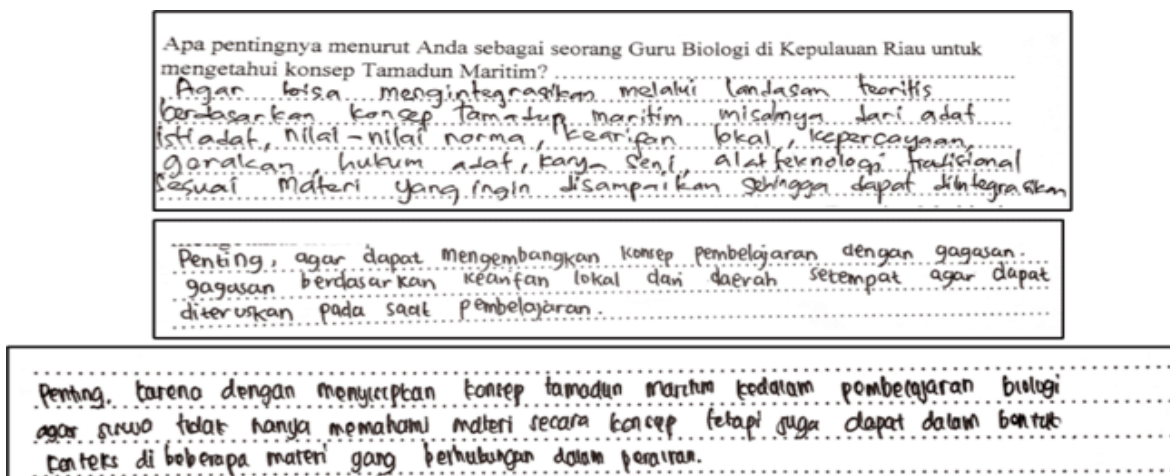 Apa pentingnya menurut Anda sebagai seorang Guru Biologi di Kepulauan Riau untuk
mengetahui konsep Tamadun Maritim? ........
Agar bisa mengintegrasikan melalui landasan teoritis
berdasarkan konsep tamadun maritim misalnya dari adat
istiadat, nilai-nilai norma, kearifan lokal, kepercayaan,
gerakan, hukum adat, karya seni, alat teknologi tradisional
sesuai materi yang ingin disampaikan sehingga dapat diintegrasikan
Penting, agar dapat mengembangkan konsep pembelajaran dengan gagasan-
gagasan berdasarkan kearifan lokal dari daerah setempat agar dapat
diteruskan pada saat pembelajaran.
Penting, karena dengan konsep tamadun maritim kedalam pembelajaran biologi
agar siswa tidak hanya memahami materi secara konsep tetapi juga dapat dalam bentuk
konteks di beberapa materi yang berhubungan dalam perairan.